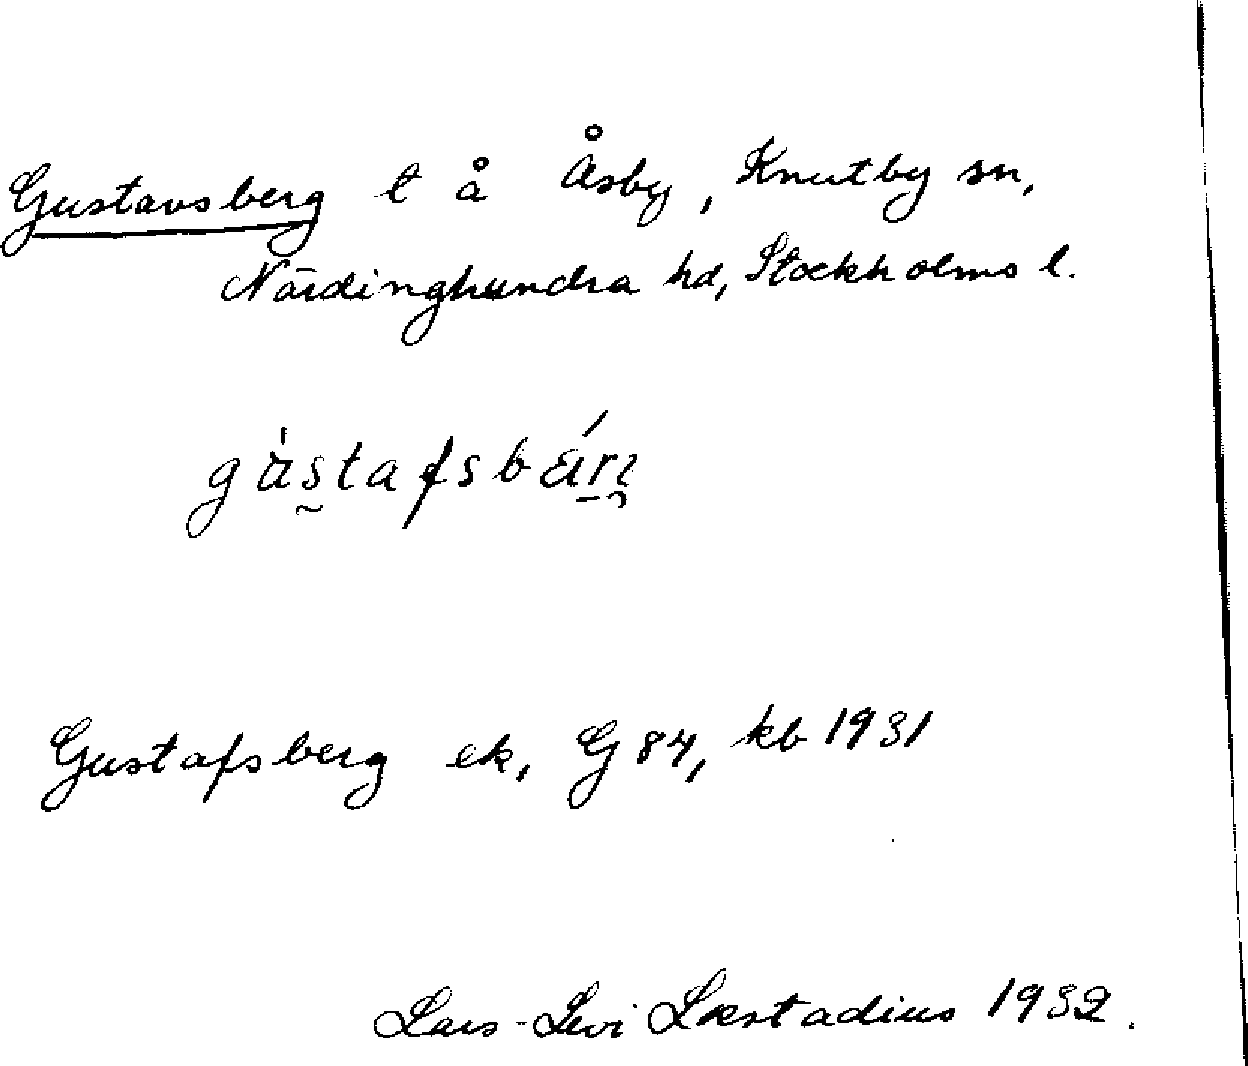 Gustavsberg t å Åsby, Knutby sn,
Närdinghundra hd, Stockholms l.
gùstafsbárj
Gustafsberg ek, G 84, kb 1931
Lars-Levi Læstadius 1932.